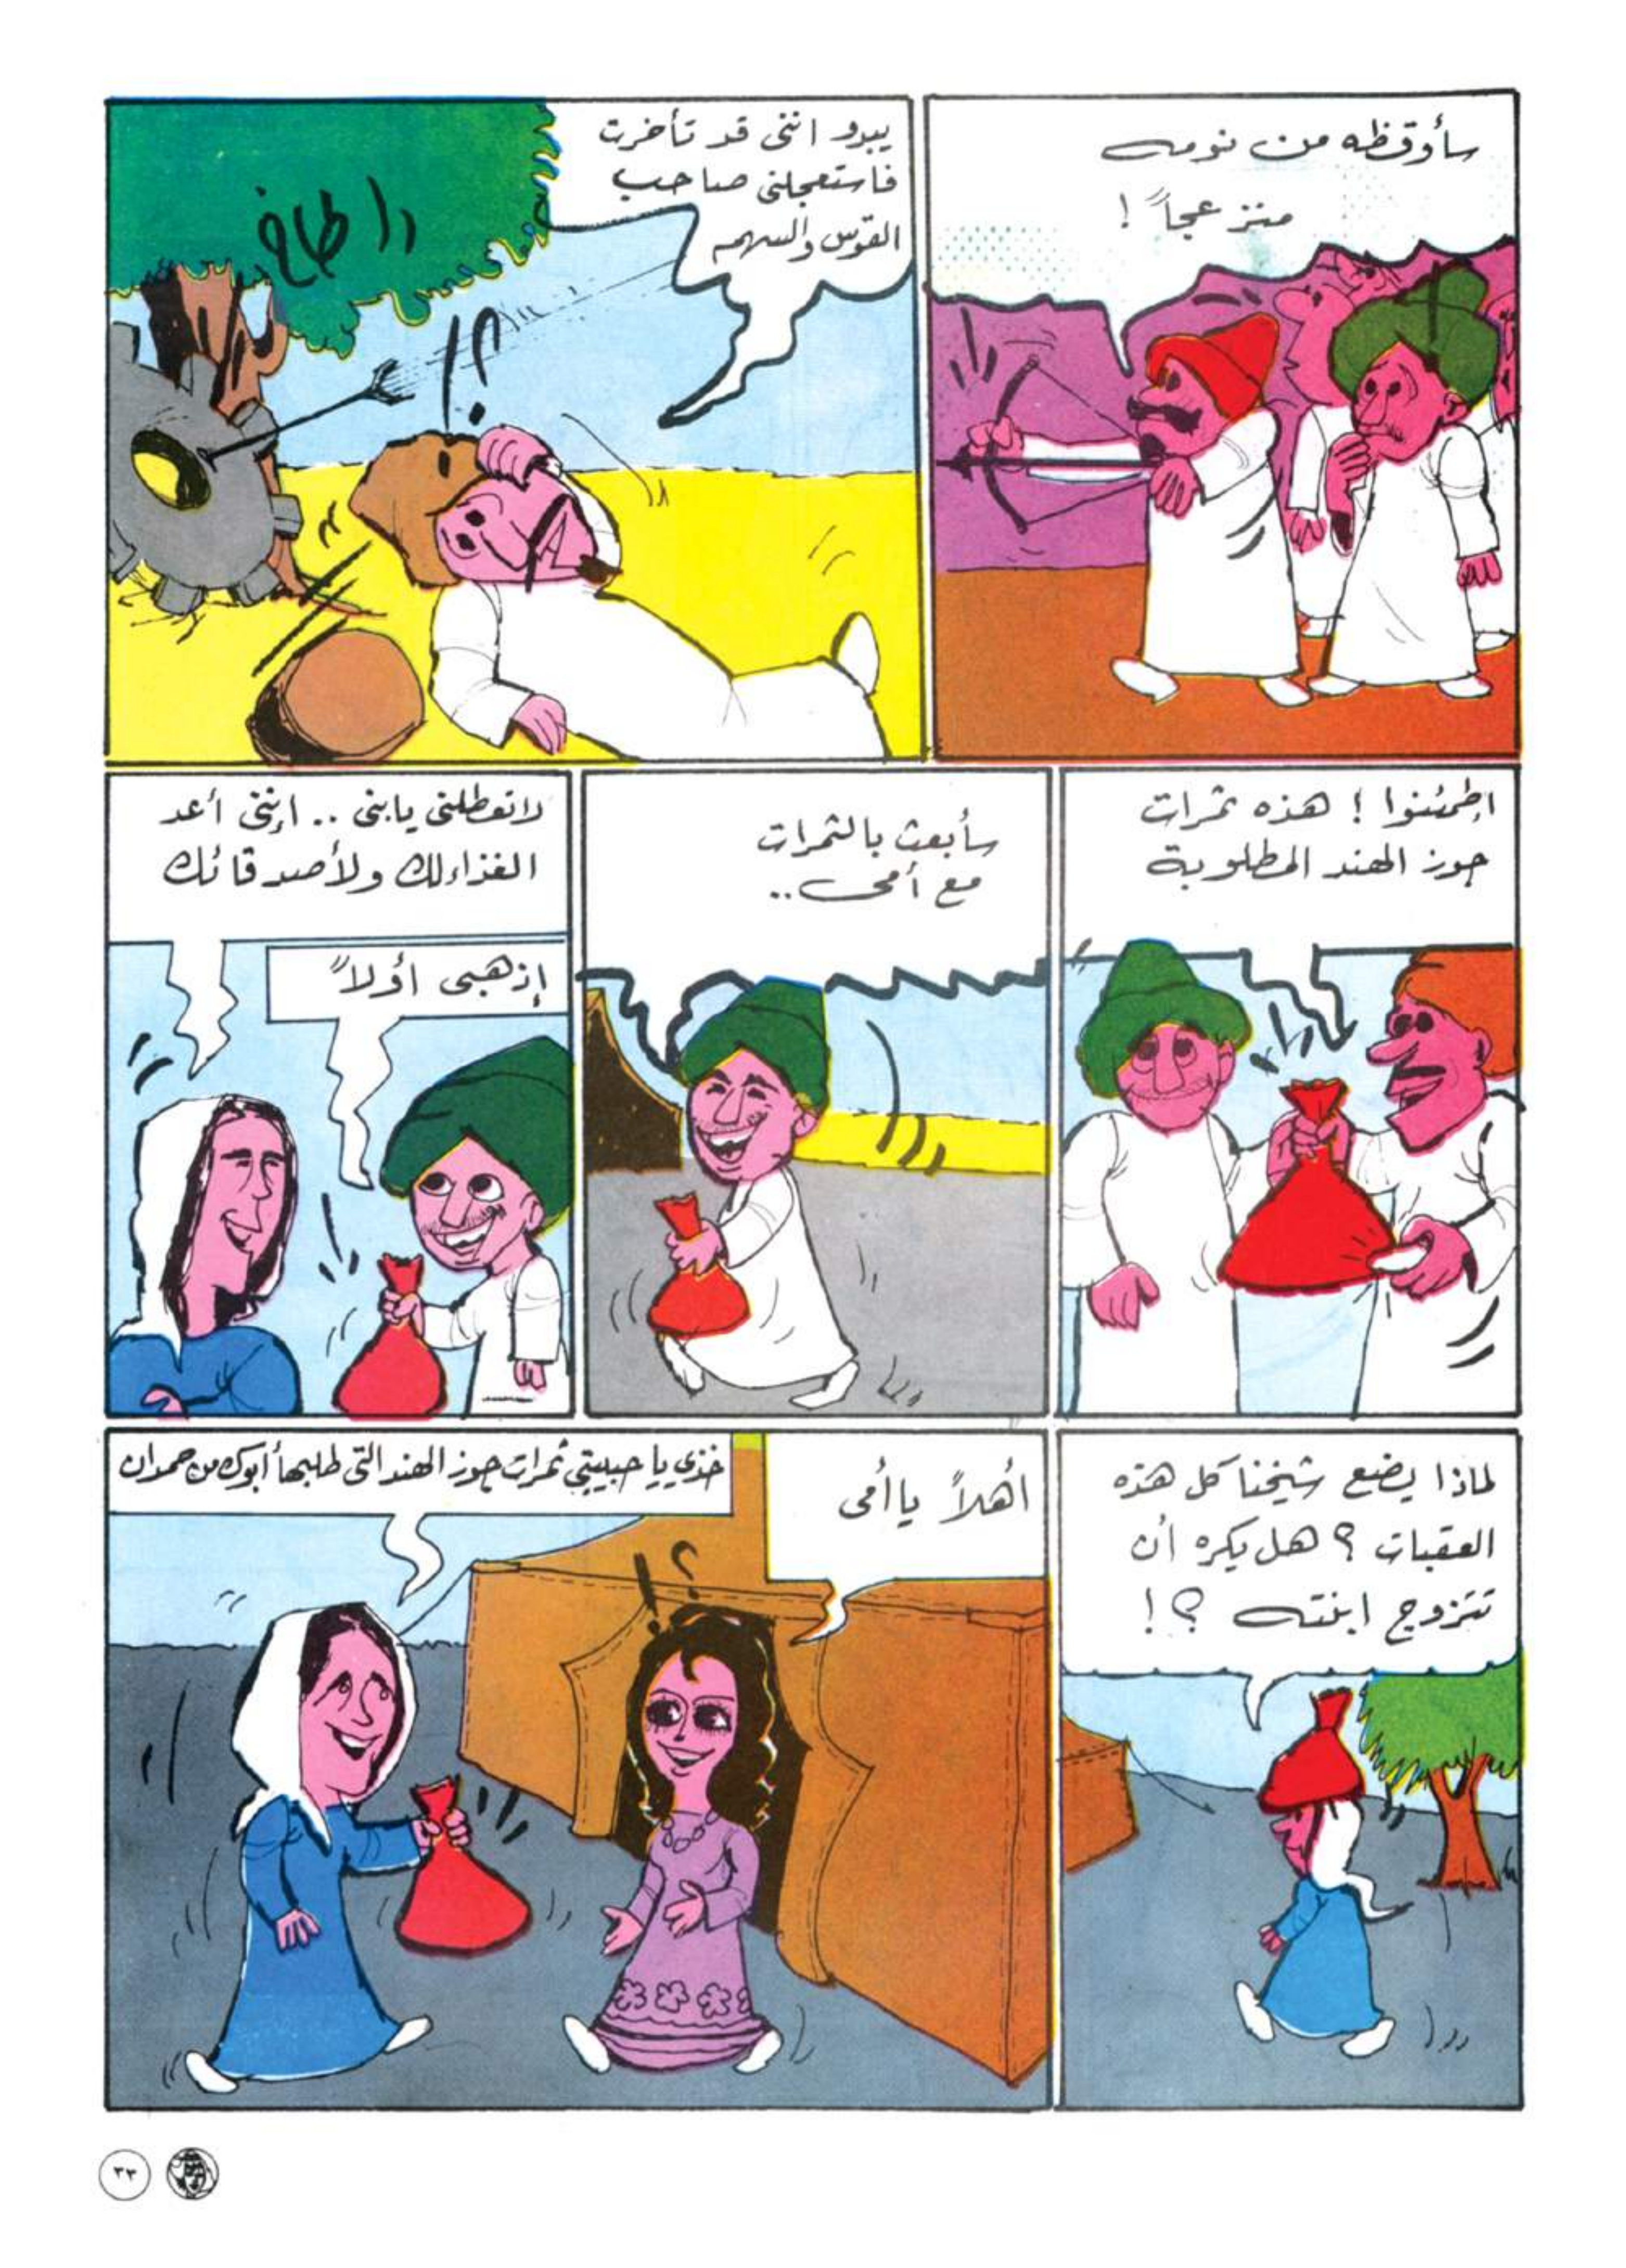 سأوقظه من نومه
منزعجاً !
يبدو انني قد تأخرت
فاستعجلني صاحب
القوس والسهم
طاخ
!؟
إطمئنوا ! هذه ثمرات
جوز الهند المطلوبة
سأبعث بالثمرات
مع أمي ..
لاتعطلني يابني .. إنني أعد
الغذاء لك ولأصدقائك
إذهبي أولاً
لماذا يضع شيخنا كل هذه
العقبات ؟ هل يكره أن
تتزوج ابنته ؟ !
أهلاً ياأمي
خذي يا حبيبتي ثمرات جوز الهند التي طلبها أبوك من حمدان
!؟
٣٣